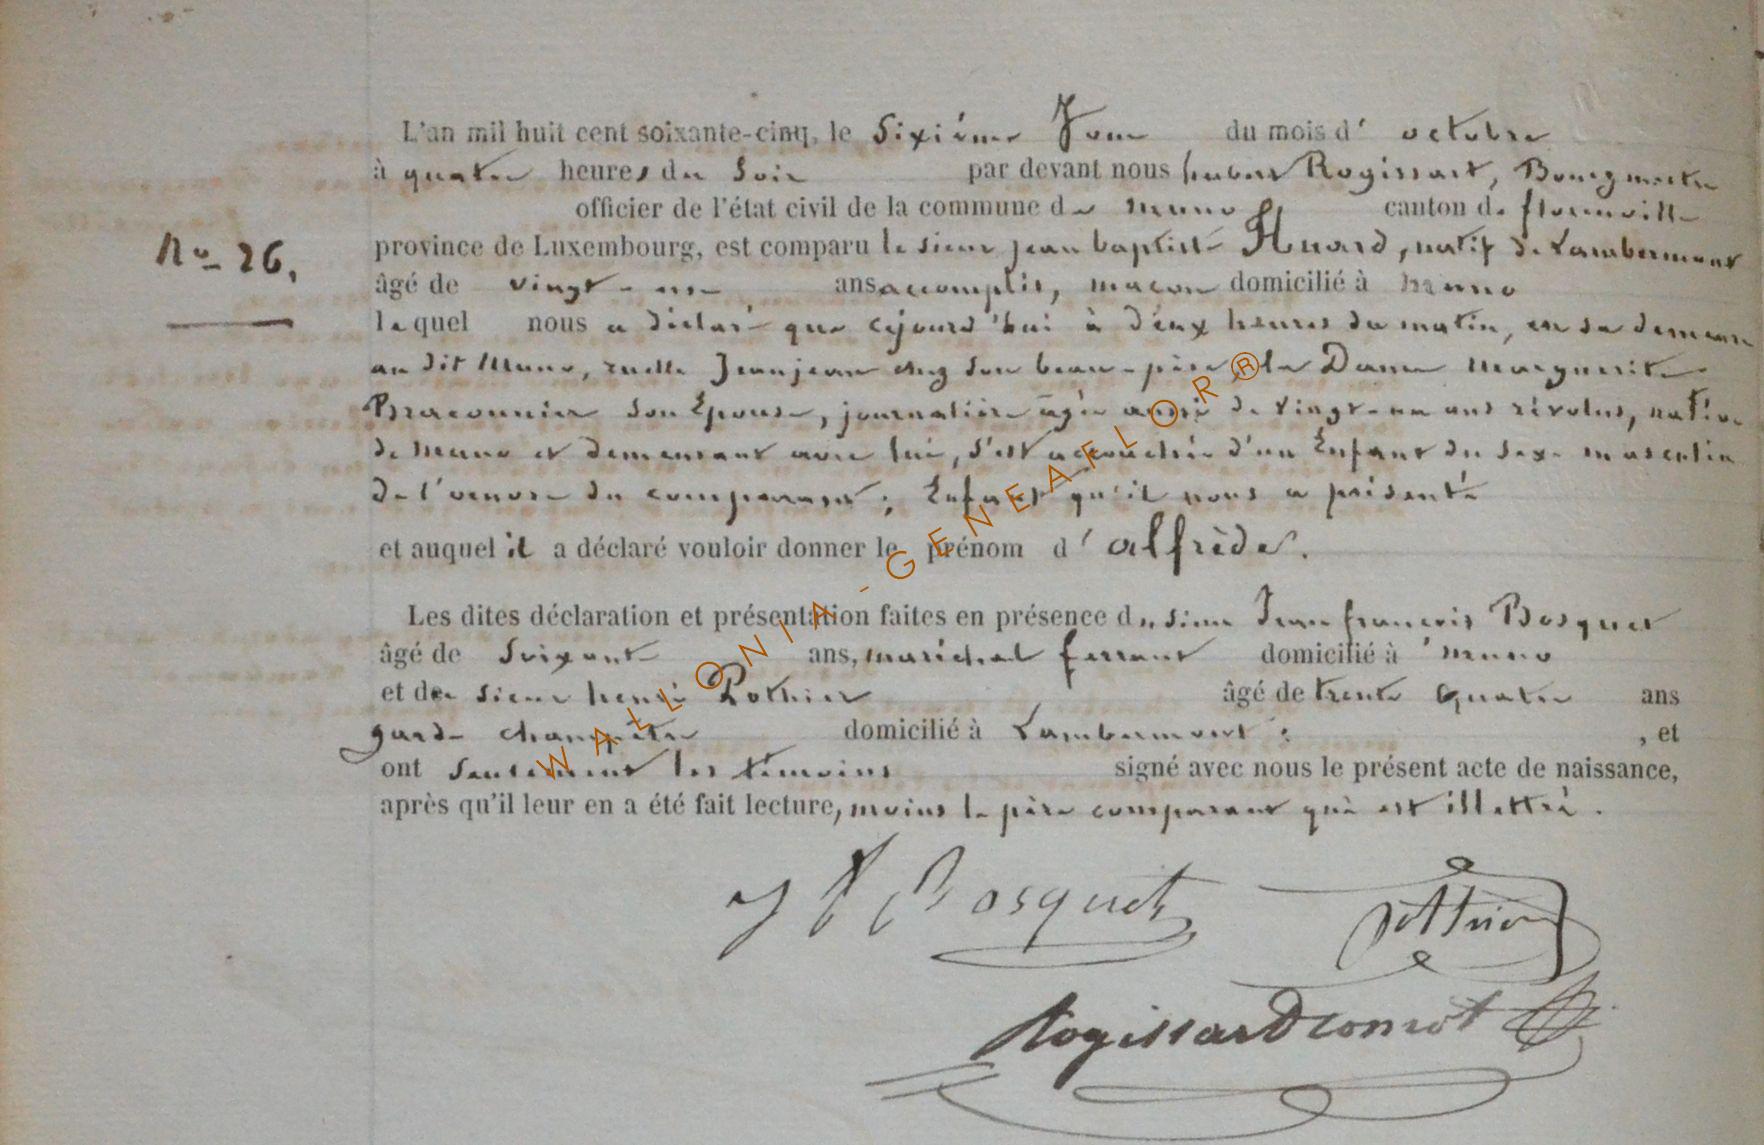 L'an mil huit cent soixante-cinq, le Sixième Jour du mois d' octobre
à quatre heures du Soir par devant nous hubert Rogissart, Bourgmestre
officier de l'état civil de la commune de muno canton de florenville
N° 26.
province de Luxembourg, est comparu le sieur jean baptiste Huard, natif de Lambermont
âgé de vingt-un ans accomplis, maçon domicilié à muno
lequel nous a déclaré que cejourd'hui à deux heures du matin, en sa demeure
au dit Muno, ruelle Jeanjean chez son beau-père la Dame marguerite
Braconnier son Epouse, journalière âgée aussi de vingt-un ans révolus, native
de muno et demeurant avec lui, s'est accouchée d'un Enfant du sexe masculin
de l'oeuvre du comparant; Enfant qu'il nous a présenté
et auquel il a déclaré vouloir donner le prénom d'alfrède.
Les dites déclaration et présentation faites en présence du sieur Jean françois Bosquet
âgé de Soixante ans, maréchal ferrant domicilié à muno
et du sieur henri Pothier âgé de trente quatre ans
garde champêtre domicilié à Lambermont ; , et
ont seulement les témoins signé avec nous le présent acte de naissance,
après qu'il leur en a été fait lecture, moins le père comparant qui est illettré.
J f Bosquet
Pothier
Rogissart
WALLONIA-GENEAFLOR®